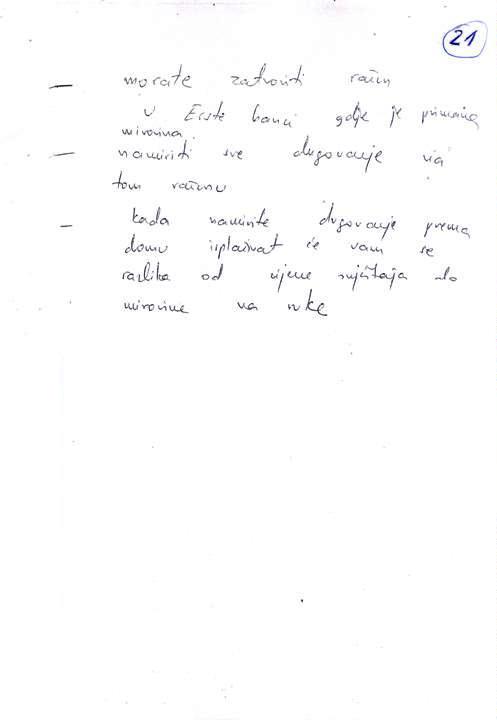 21
— morate zatvoriti račun
u Erste banci gdje je primana
mirovina
— namiriti sve dugovanje na
tom računu
— kada namirite dugovanje prema
domu isplaćivat će vam se
razlika od cijene smještaja do
mirovine na ruke